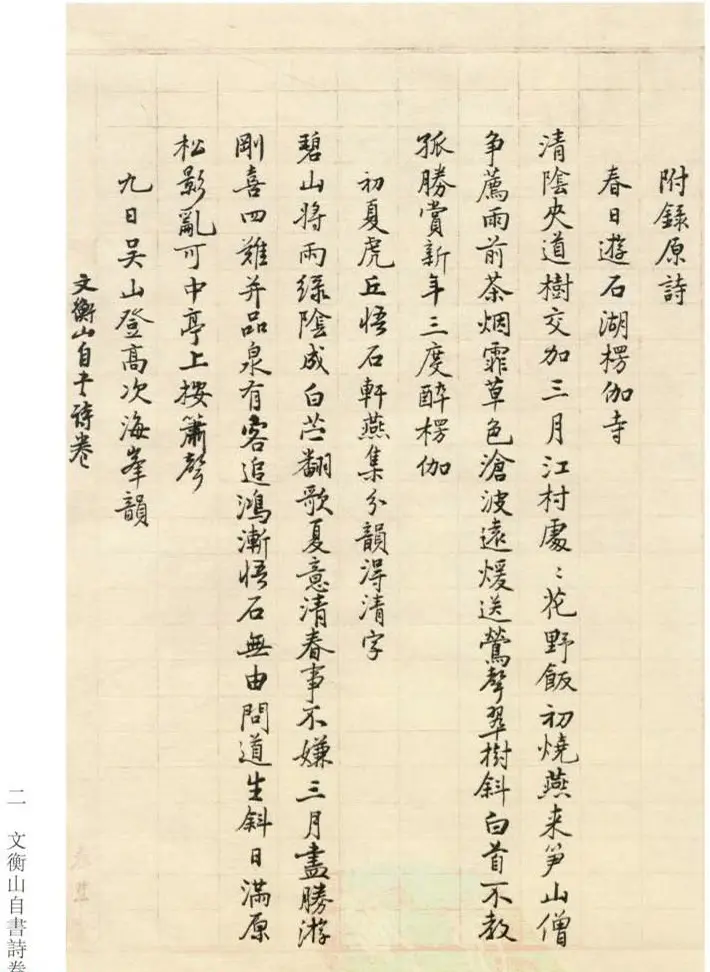 附錄原詩
春日遊石湖楞伽寺
清陰央道樹交加三月江村處〻花野飯初燒燕来笋山僧
争薦雨前茶烟霏草色滄波遠煖送鶯聲翠樹斜白首不教
孤勝賞新年三度醉楞伽
初夏虎丘悟石軒燕集分韻得清字
碧山将雨綠陰成白苎翻歌夏意清春事不嫌三月盡勝游
剛喜四難并品泉有客追鴻漸悟石無由問道生斜日滿原
松影亂可中亭上按簫聲
九日吴山登高次海峯韻
文衡山自書詩卷
二 文衡山自書詩卷